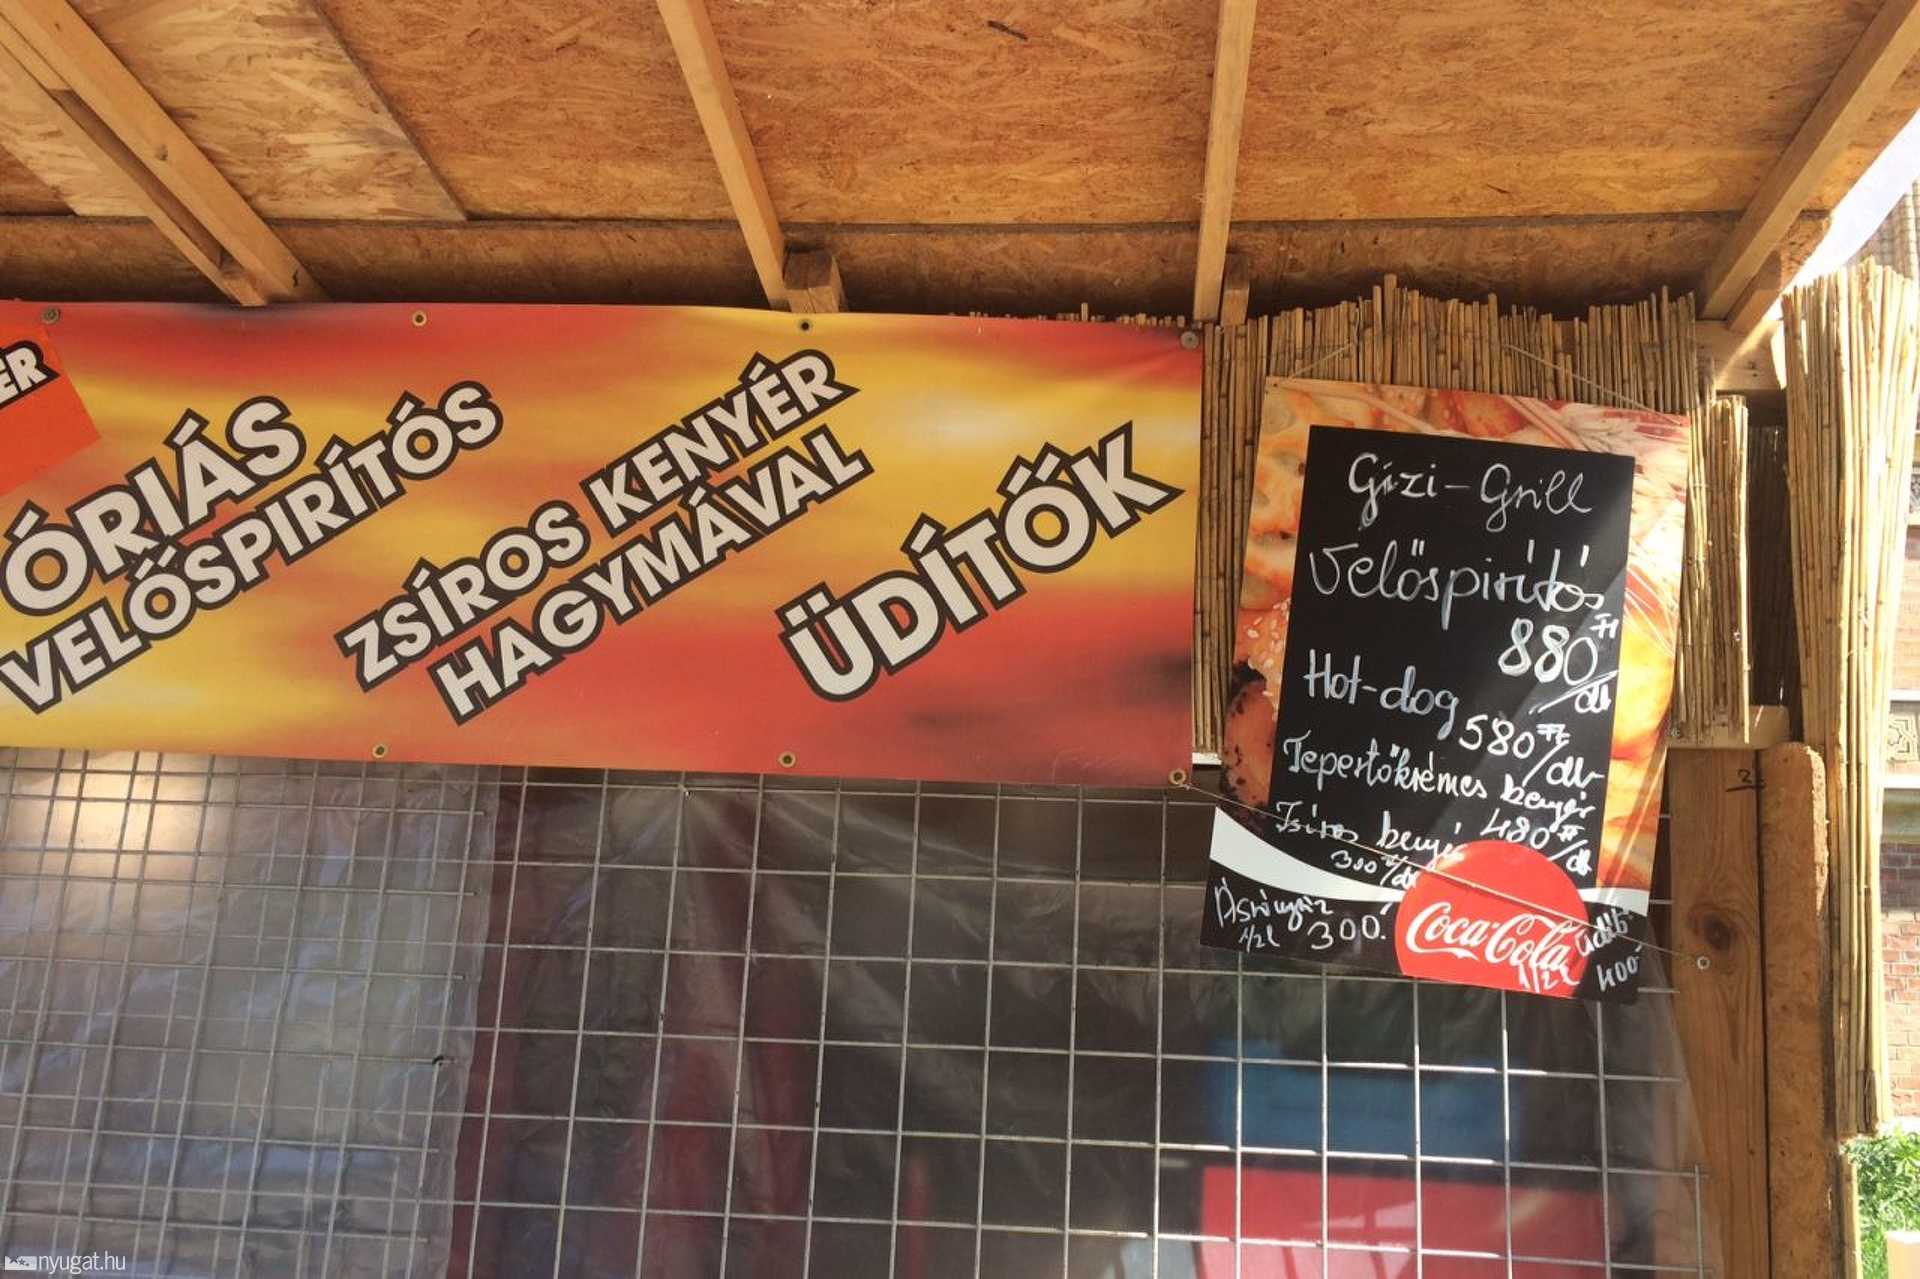 ÉR
ÓRIÁS
VELŐSPIRÍTÓS
ZSÍROS KENYÉR
HAGYMÁVAL
ÜDÍTŐK
Gizi-Grill
Velőspirítós
880 Ft
/db
Hot-dog
580 Ft/db
Tepertőkrémes kenyér
480 Ft/db
Zsíros kenyé
300 Ft/db
Ásványvíz
1/2 l 300.-
Coca-Cola
Üdítő
1/2 l 400.-
nyugat.hu